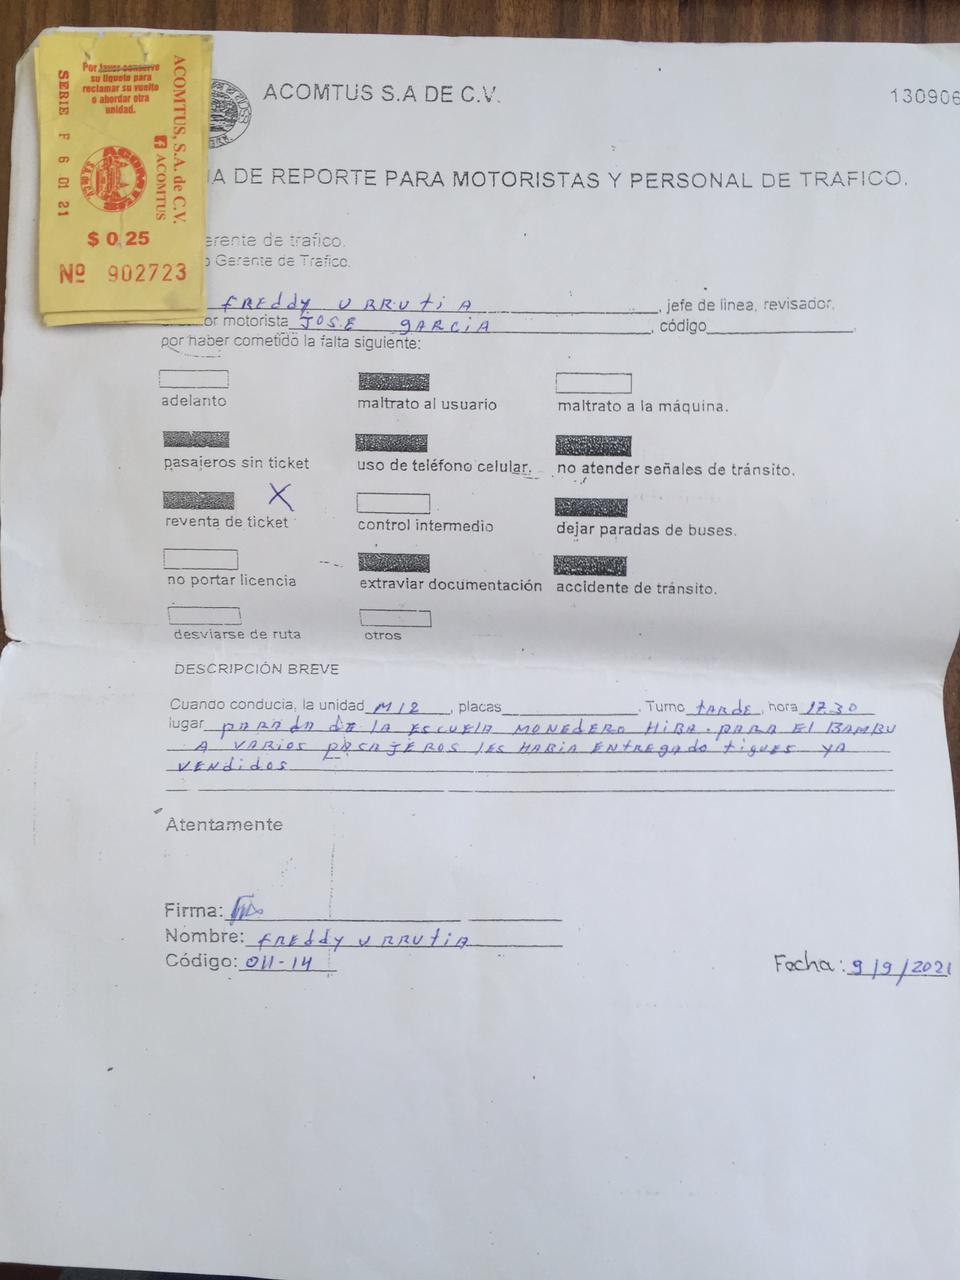 Por favor conserve
su tiquete para
reclamar su vuelto
o abordar otra
unidad.
SERIE F 6 01 21
ACOMTUS, S.A. de C.V.
ACOMTUS
ACOMTUS
S.A. de C.V.
$ 0.25
Nº 902723
ACOMTUS S.A DE C.V.
130906
A DE REPORTE PARA MOTORISTAS Y PERSONAL DE TRAFICO.
erente de trafico.
o Gerente De Trafico.
FREddy URRUtiA, jefe de linea, revisador,
or motorista JOSE GARCIA, código
por haber cometido la falta siguiente:
adelanto maltrato al usuario maltrato a la máquina.
pasajeros sin ticket uso de teléfono celular. no atender señales de tránsito.
X
reventa de ticket control intermedio dejar paradas de buses.
no portar licencia extraviar documentación accidente de tránsito.
desviarse de ruta otros
DESCRIPCIÓN BREVE
Cuando conducia, la unidad M12, placas. Turno tARdE, hora 17.30
lugar PARADA DE LA ESCUELA MONEDERO HIBA. PARA El BAMBU
A VARIOS PASAJEROS LES HABIA ENTREGADO tiques YA
VENdidos
Atentamente
Firma:
Nombre: FREddy URRUtiA
Código: 011-14
Fecha: 9/9/2021